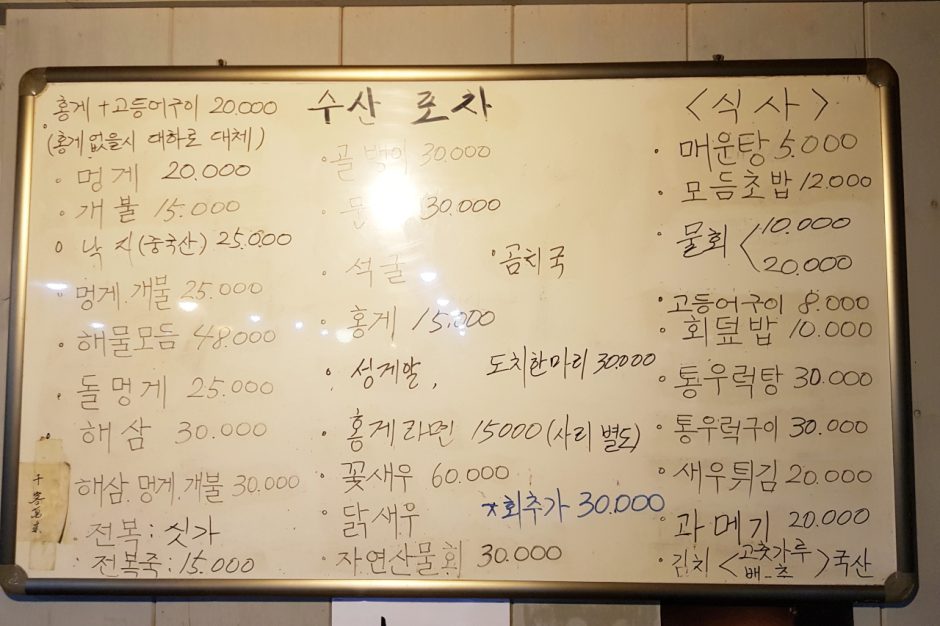 홍게 + 고등어구이 20.000
(홍게 없을시 대하로 대체)
· 멍게 20.000
· 개불 15.000
낙지(중국산) 25.000
· 멍게.개불 25.000
· 해물모듬 48.000
· 돌멍게 25.000
· 해삼 30.000
해삼.멍게.개불 30.000
· 전복 : 싯가
· 전복죽 : 15.000
수산 포차
· 골뱅이 30.000
30.000
· 석굴
· 곰치국
· 홍게 15.000
· 성게알,
도치한마리 30.000
· 홍게라면 15000 (사리 별도)
· 꽃새우 60.000
· 닭새우
*회추가 30.000
· 자연산물회 30.000
<식사>
· 매운탕 5.000
· 모듬초밥 12.000
· 물회 < 10.000
20.000
· 고등어구이 8.000
· 회덮밥 10.000
· 통우럭탕 30.000
· 통우럭구이 30.000
· 새우튀김 20.000
· 과메기 20.000
· 김치 < 고춧가루
배추 > 국산